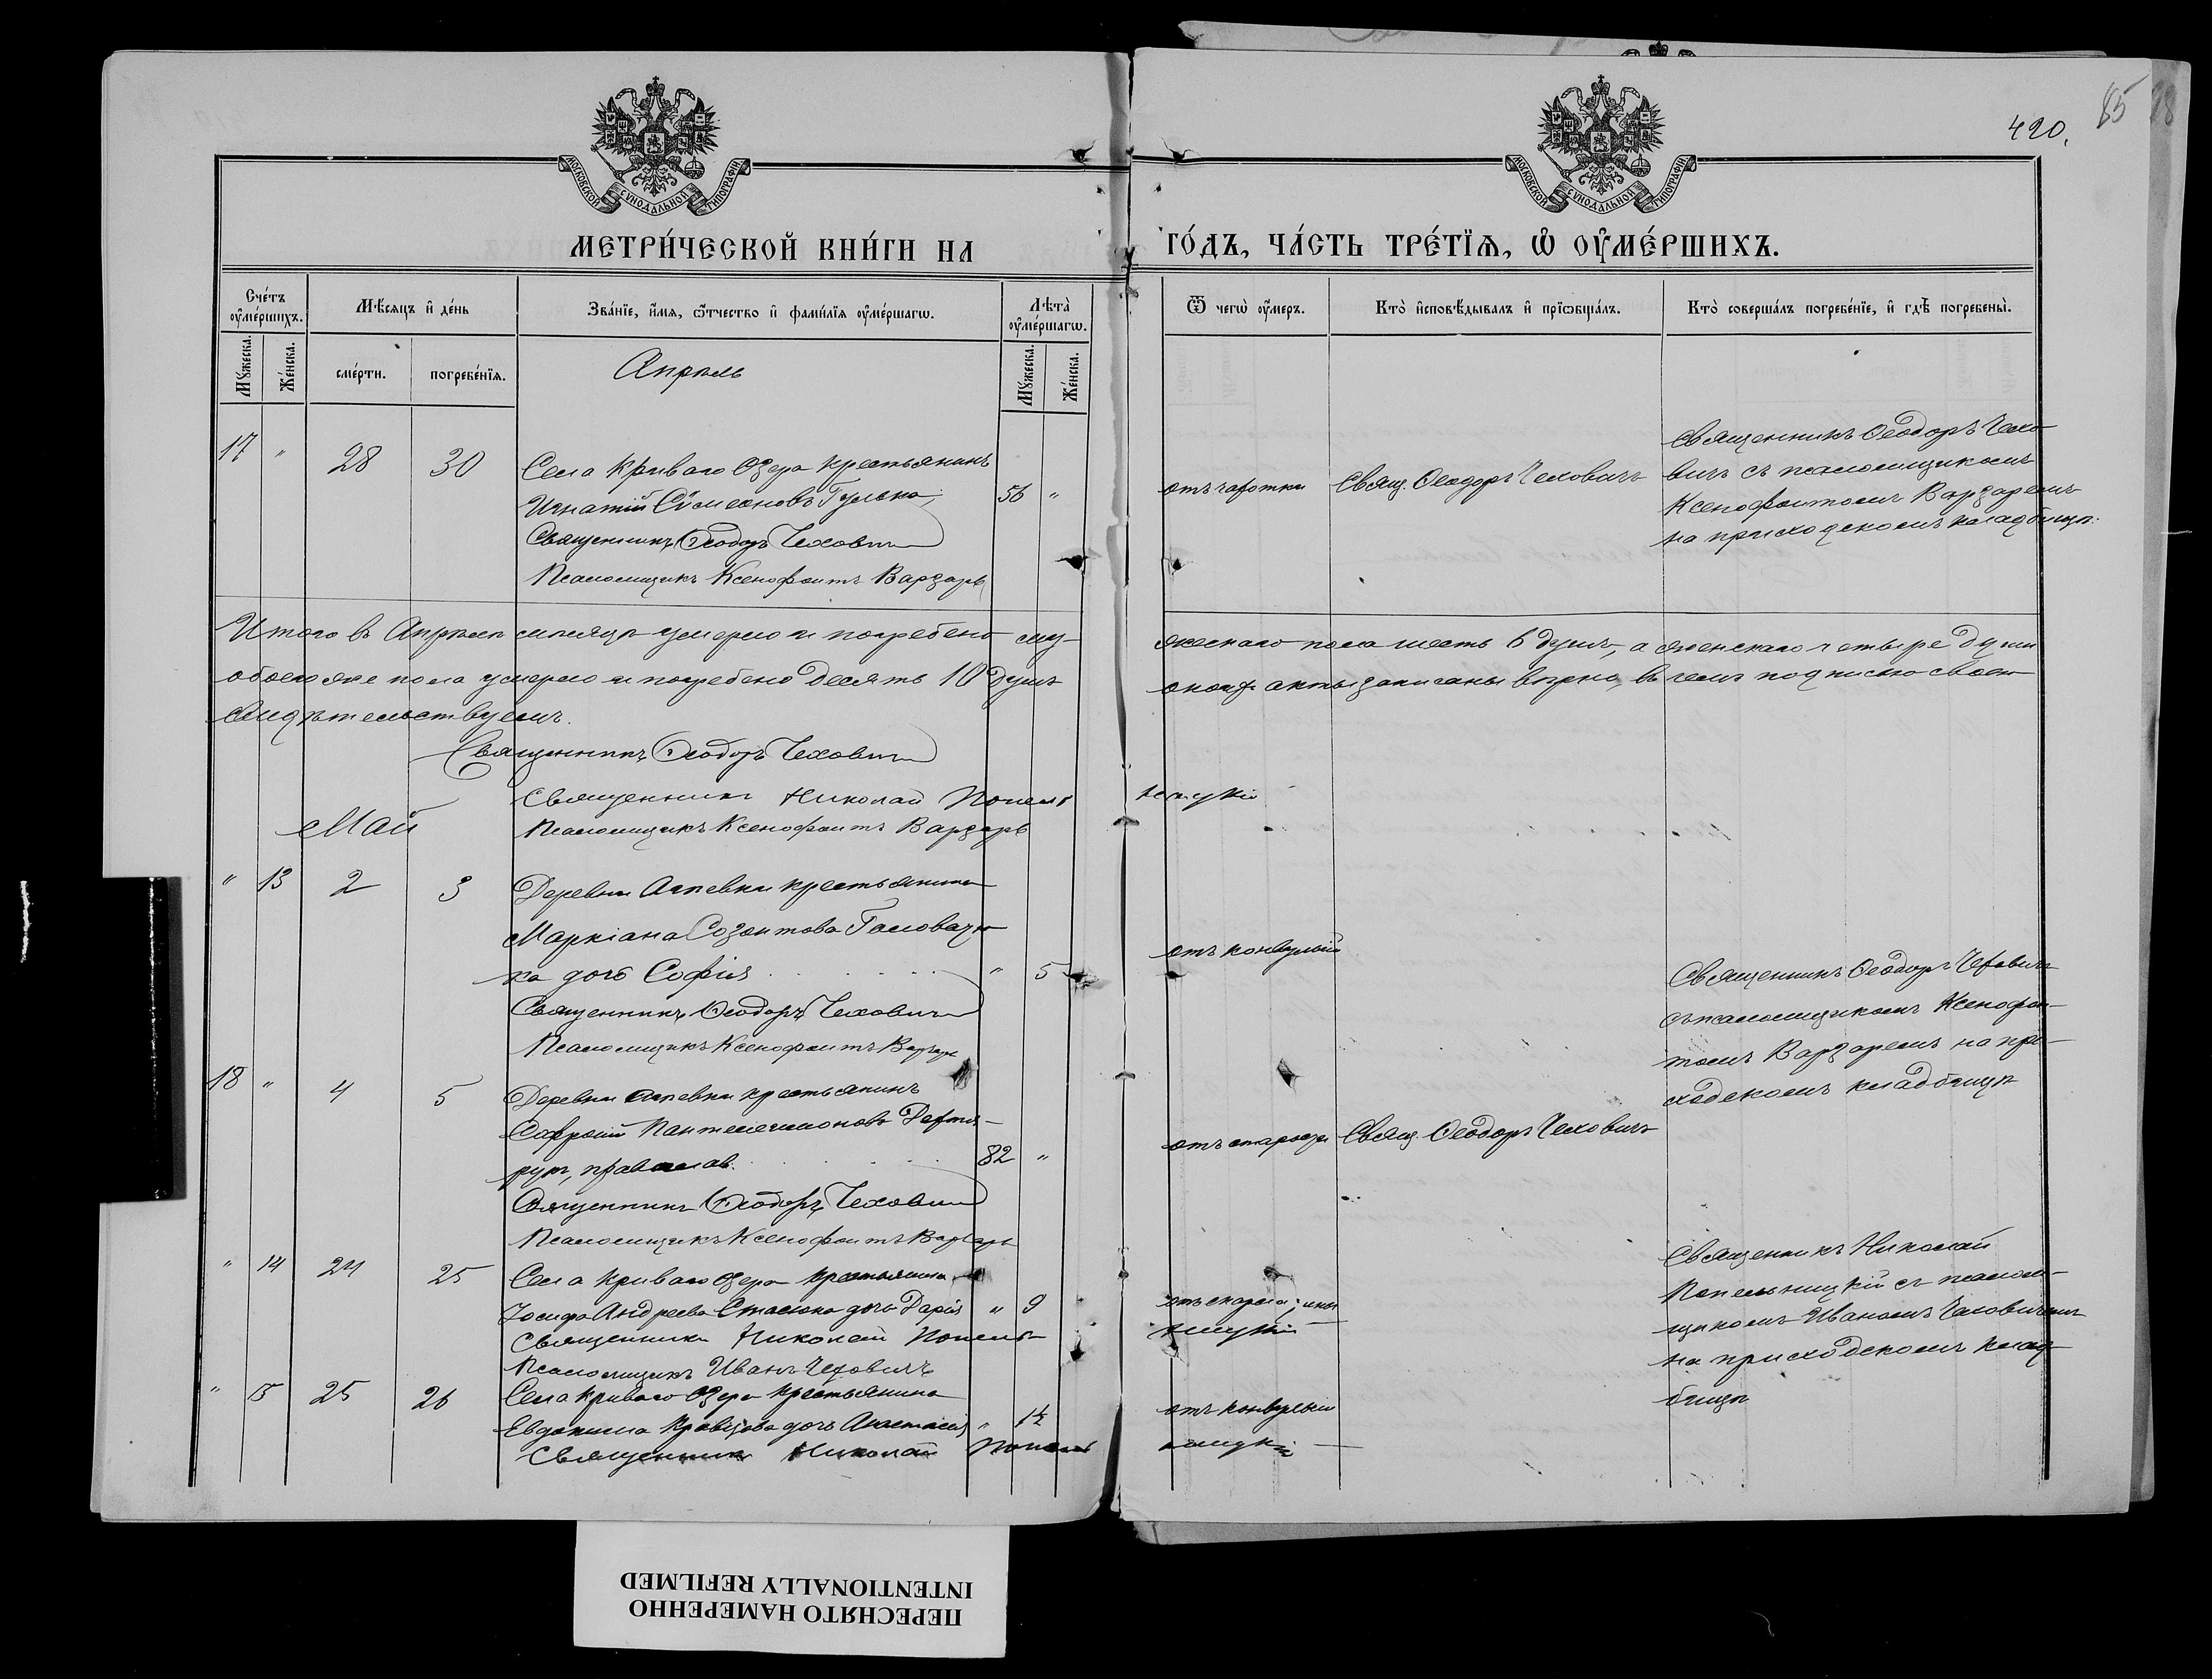 420.
85
МОСКОВСКОЙ СѴНОДАЛЬНОЙ ТИПОГРАФІИ
МОСКОВСКОЙ СѴНОДАЛЬНОЙ ТИПОГРАФІИ
МЕТРИ́ЧЕСКОЙ КНИ́ГИ НА
ГО́ДЪ, ЧА́СТЬ ТРЕ́ТІѦ, Ѡ҆ ОУ҆МЕ́РШИХЪ.
Сче́тъ оу҆ме́ршихъ.
Мѣ́сяцъ и҆ де́нь
Зва́нїе, и҆́мя, ѻ҆́тчество и҆ фами́лїя оу҆ме́ршагѡ.
Лѣта̀ оу҆ме́ршагѡ.
Ѿ чегѡ̀ оу҆́меръ.
Кто̀ и҆сповѣ́дывалъ и҆ прїѡбща́лъ.
Кто̀ соверша́лъ погребе́нїе, и҆ гдѣ̀ погребены̀.
Мꙋ́жеска.
Же́нска.
сме́рти.
погребе́нїя.
Мꙋ́жеска.
Же́нска.
Апрѣль
17 " 28 30 Села Криваго Озера крестьянинъ
Игнатій Сѵмеоновъ Гулька, 56 "
Священникъ Ѳеодоръ Чеховичъ
Псаломщикъ Ксенофонтъ Варзарь
отъ чахотки
Свящ. Ѳеодоръ Чеховичъ
Священникъ Ѳеодоръ Чехо-
вичъ съ псаломщикомъ
Ксенофонтомъ Варзаремъ
на приходскомъ кладбищѣ.
Итого въ Апрѣлѣ мѣсяцѣ умерло и погребено му-
жескаго пола шесть 6 душъ, а женскаго четыре души
обоего же пола умерло и погребено десять 10 душъ
акты записаны вѣрно, въ чемъ подписью своею
свидѣтельствуемъ.
Священникъ Ѳеодоръ Чеховичъ
Священникъ Николай Попель
ницкій
Псаломщикъ Ксенофонтъ Варзарь
Май
" 13 2 3 Деревни крестьянина
Маркіана Созонтова
ка дочь София " 5
Священникъ Ѳеодоръ Чеховичъ
Псаломщикъ Ксенофонтъ Варзарь
отъ конвульсій
Священникъ Ѳеодоръ Чеховичъ
съ псаломщикомъ Ксенофон-
томъ Варзаремъ на при-
ходскомъ кладбищѣ
18 " 4 5 Деревни крестьянинъ
Софроній Пантелеимоновъ
православ. 82 "
Священникъ Ѳеодоръ Чеховичъ
Псаломщикъ Ксенофонтъ Варзарь
отъ старости
Свящ. Ѳеодоръ Чеховичъ
" 14 24 25 Села Криваго Озера крестьянина
Іосифа Андреева дочь Дарія " 9
Священникъ Николай Попель
Псаломщикъ Иванъ Чеховичъ
отъ скарлатины
ницкій
Священникъ Николай
Попельницкій съ псалом-
щикомъ Иваномъ Чеховичемъ
на приходскомъ клад-
бищѣ
" 15 25 26 Села Криваго Озера крестьянина
Евдокима Кравцова дочь Анастасія " 1½
Священникъ Николай Попель
отъ конвульсій
ницкій
ПЕРЕСНЯТО НАМЕРЕННО
INTENTIONALLY REFILMED